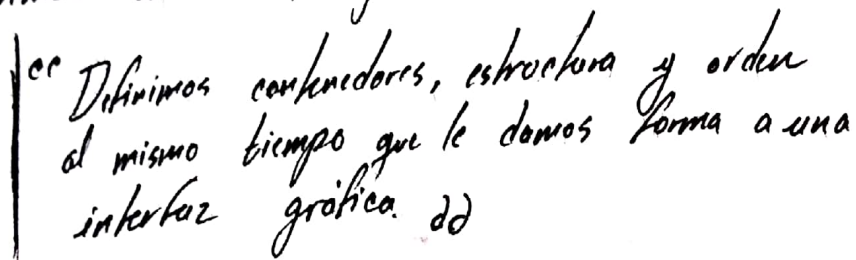 “Definimos contenedores, estructura y orden
al mismo tiempo que le damos forma a una
interfaz gráfica.”